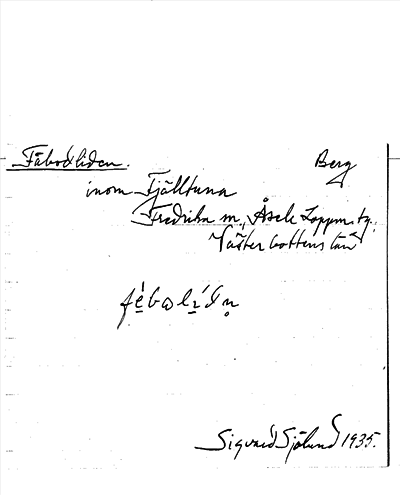 Fäbodliden. Berg
inom Fjälltuna
Fredrika sn, Åsele Lappm. tg.
Västerbottens län
Sigvard Sjölund 1935.